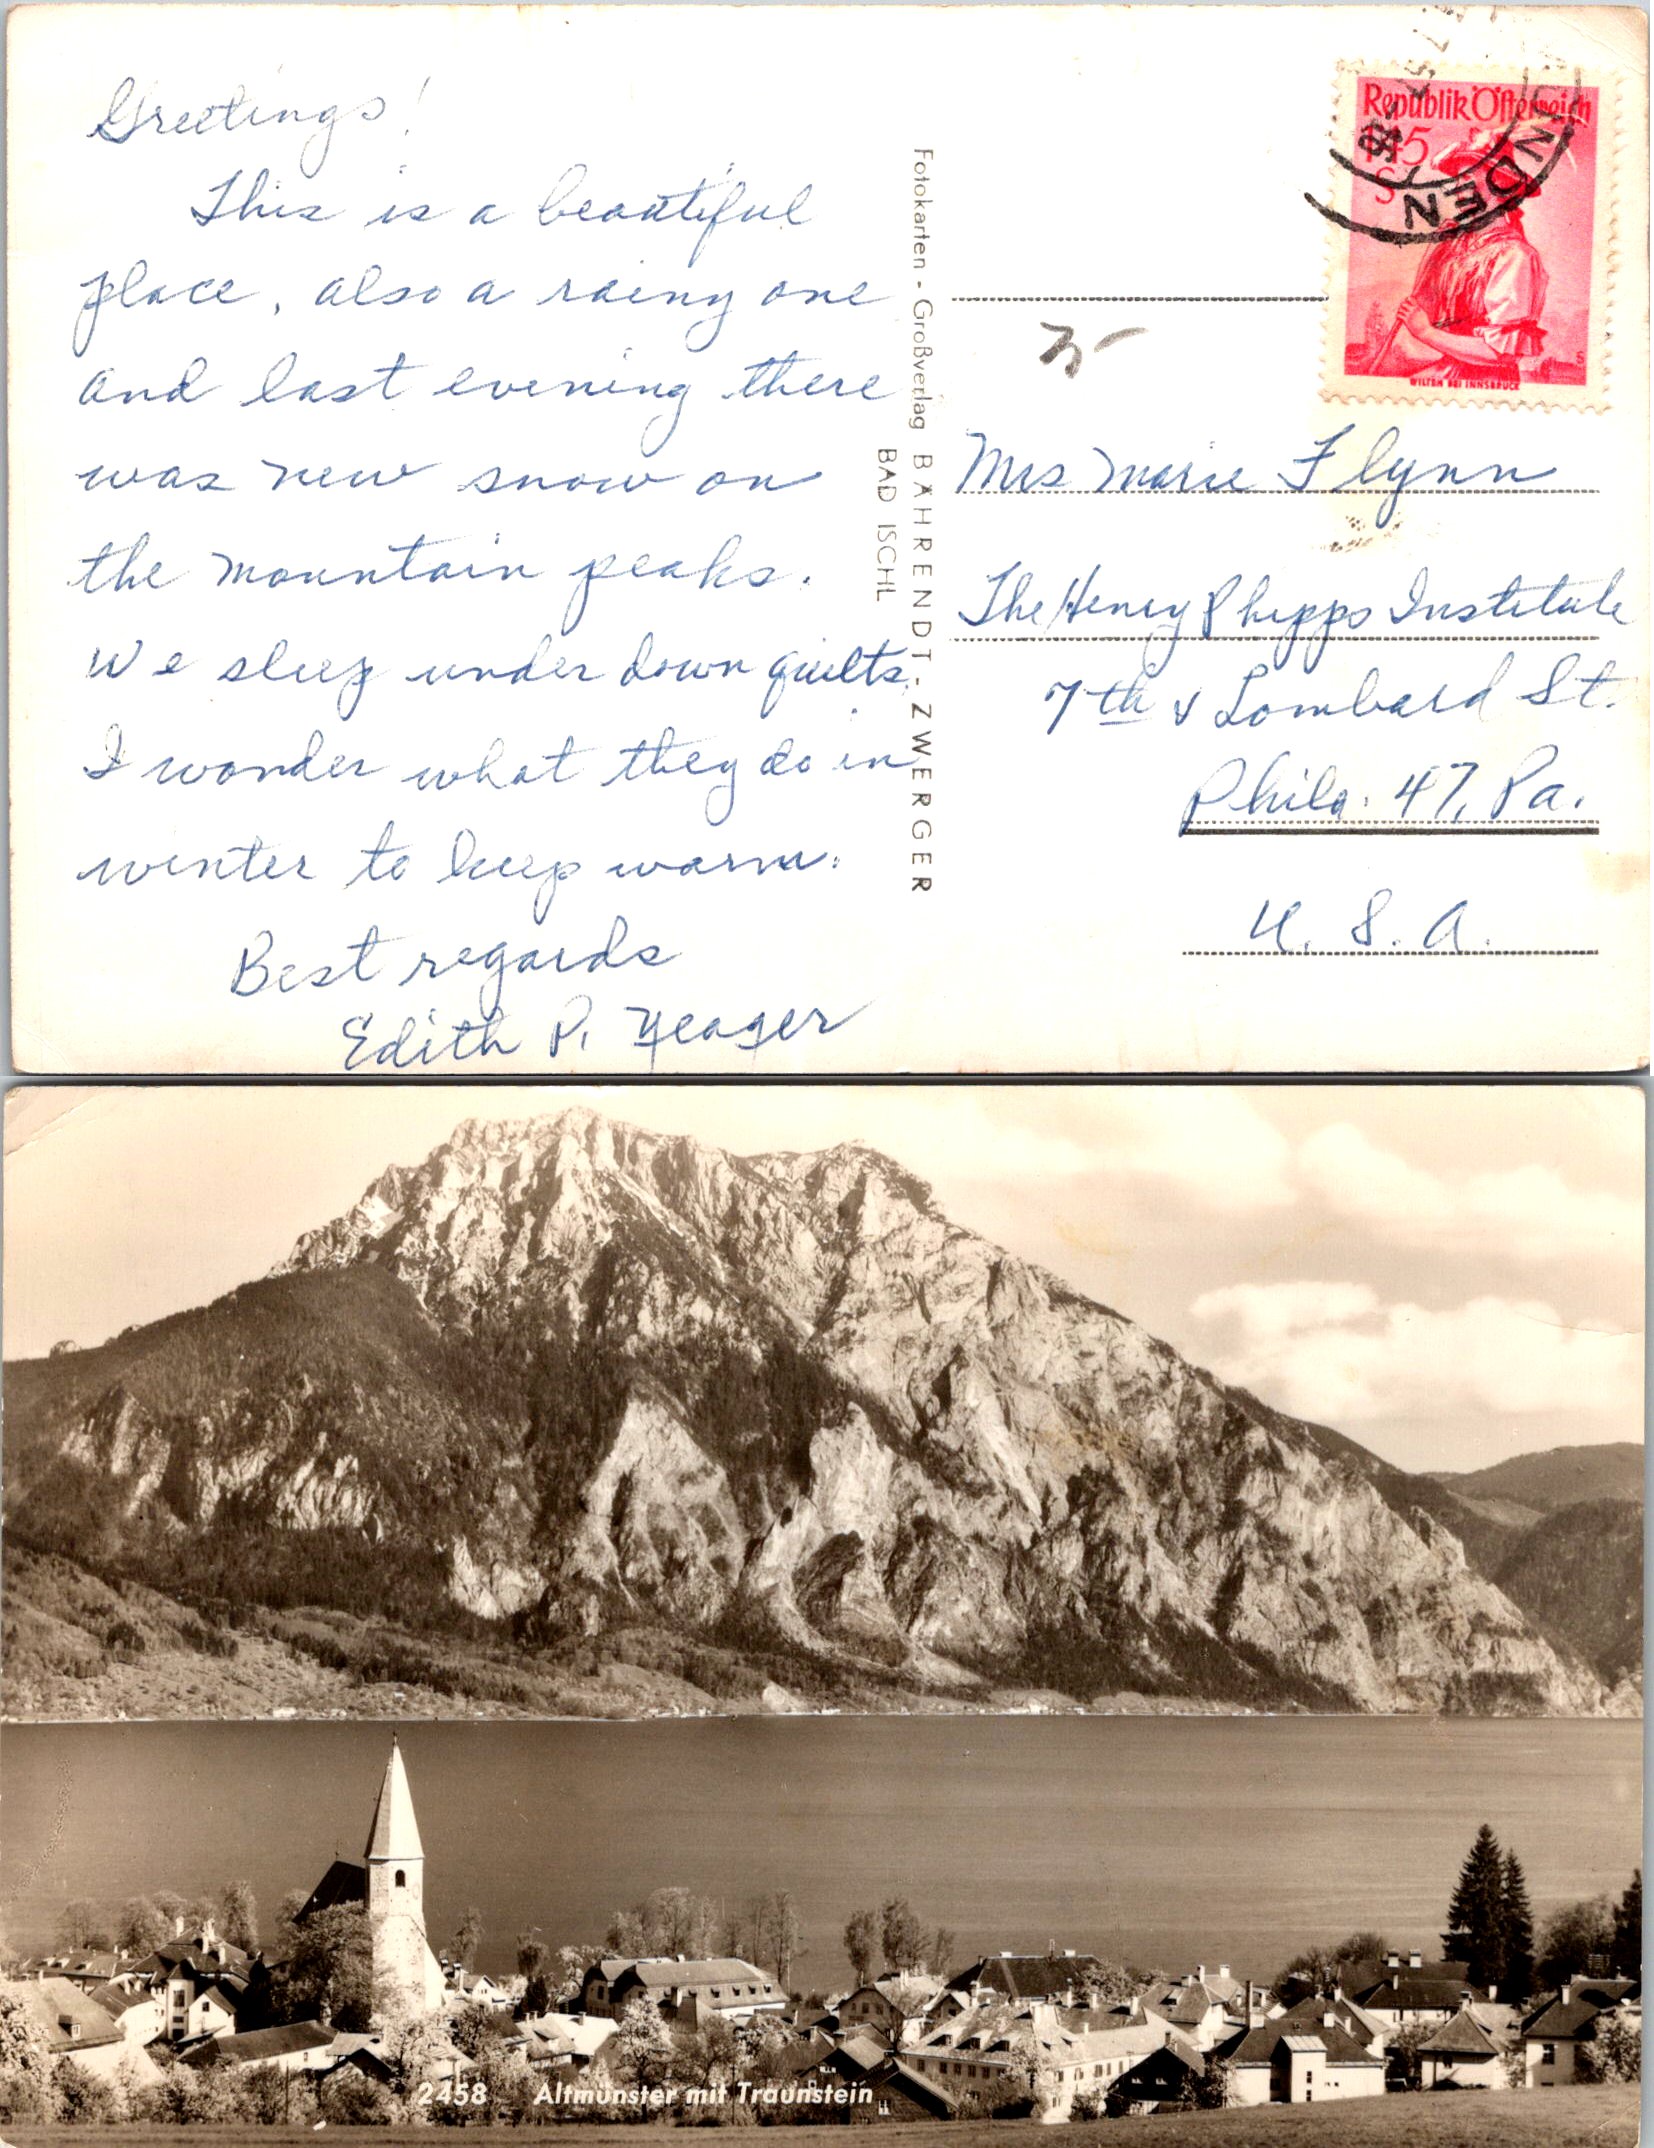 Greetings!
This is a beautiful
place, also a rainy one
and last evening there
was new snow on
the mountain peaks.
We sleep under down quilts.
I wonder what they do in
winter to keep warm.
Best regards
Edith P. Yeager
Fotokarten - Großverlag BÄHRENDT - ZWERGER
BAD ISCHL
Republik Österreich
1.45
S
WILTEN BEI INNSBRUCK
5
NDEN
Mrs Marie Flynn
The Henry Phipps Institute
7th & Lombard St.
Phila. 47, Pa.
U. S. A.
2458 Altmünster mit Traunstein